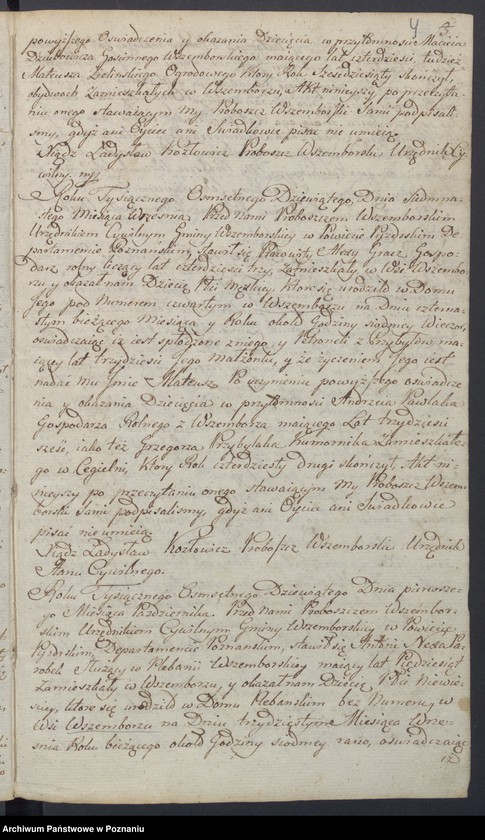 4
powyższego Oswiadczenia y okazania Dziecięcia w przytomności Macieia
Gosinnego Wszemborskiego maiącego lat czterdzieści, tudzież
Mateusza Zielinskiego Ogrodowego który Rok Szesdziesiąty skonczył
obydwoch Zamieszkałych w Wszemborzu, Akt ninieyszy po przeczyta-
niu onego stawaiącym My Proboszcz Wszemborski Sami podpisali-
smy, gdyż ani Oyciec ani Swiadkowie pisać nie umieią.
Xiądz Ladysław Kozłowicz Proboszcz Wszemborski Urzędnik Cy-
wilny. mp
Roku Tysiącznego Osmsetnego Dziewiątego, Dnia Siedmna-
stego Miesiąca Września. Przed Nami Proboszczem Wszemborskim
Urzędnikiem Cywilnym Gminy Wszemborskiey w Powiecie Pyzdrskim De-
partamencie Poznanskim, stawił się Pracowity Alexy Gracz Gospo-
darz rolny liczący lat czterdzieści trzy, zamieszkały w Wsi Wszembo-
rzu y okazał nam Dziecię Płci męskiey, które się urodziło w Domu
Jego pod Numerem czwartym w Wszemborzu na dniu czterna-
stym bieżącego Miesiąca y Roku około Godziny siodmey Wieczor,
oswiadczaiąc iż iest spłodzone z niego, y Petroneli z Przybyłow ma-
iącey lat trzydzieści Jego małżonki, y że życzeniem Jego iest
nadać Mu Jmie Mateusz. Po uczynieniu powyższego oswiadcze-
nia y okazania Dziecięcia w przytomności Andrzeia Pawlaka
Gospodarza Rolnego z Wszemborza maiącego Lat trzydzieści
sześć, iako też Grzegorza Przybylaka Kumornika Zamieszkałe-
go w Cegielni, który Rok czterdziesty drugi skonczył. Akt ni-
nieyszy po przeczytaniu onego stawaiącym My Proboszcz Wszem-
borski Sami podpisalismy, gdyż ani Oyciec ani Swiadkowie
pisać nie umieią.
Xiądz Ladysław Kozłowicz Proboszcz Wszemborski Urzędnik
Stanu Cywilnego.
Roku Tysiącznego Osmsetnego Dziewiątego Dnia pierwsze-
go Miesiąca Października. Przed Nami Proboszczem Wszembor-
skim Urzędnikiem Cywilnym Gminy Wszemborskiey w Powiecie
Pyzdrskim, Departamencie Poznanskim, stawił się Antoni Neza Pa-
robek Służący w Plebanii Wszemborskiey maiący lat Piędziesiąt
Zamieszkały w Wszemborzu, y okazał nam Dziecię Płci Niewie-
sciey, które się urodziło w Domu Plebanskim bez Numeru, w
Wsi Wszemborzu na Dniu trzydziestym Miesiąca Wrze-
snia Roku bieżącego około Godziny siodmey rano, oswiadczaiąc
iż
Archiwum Państwowe w Poznaniu